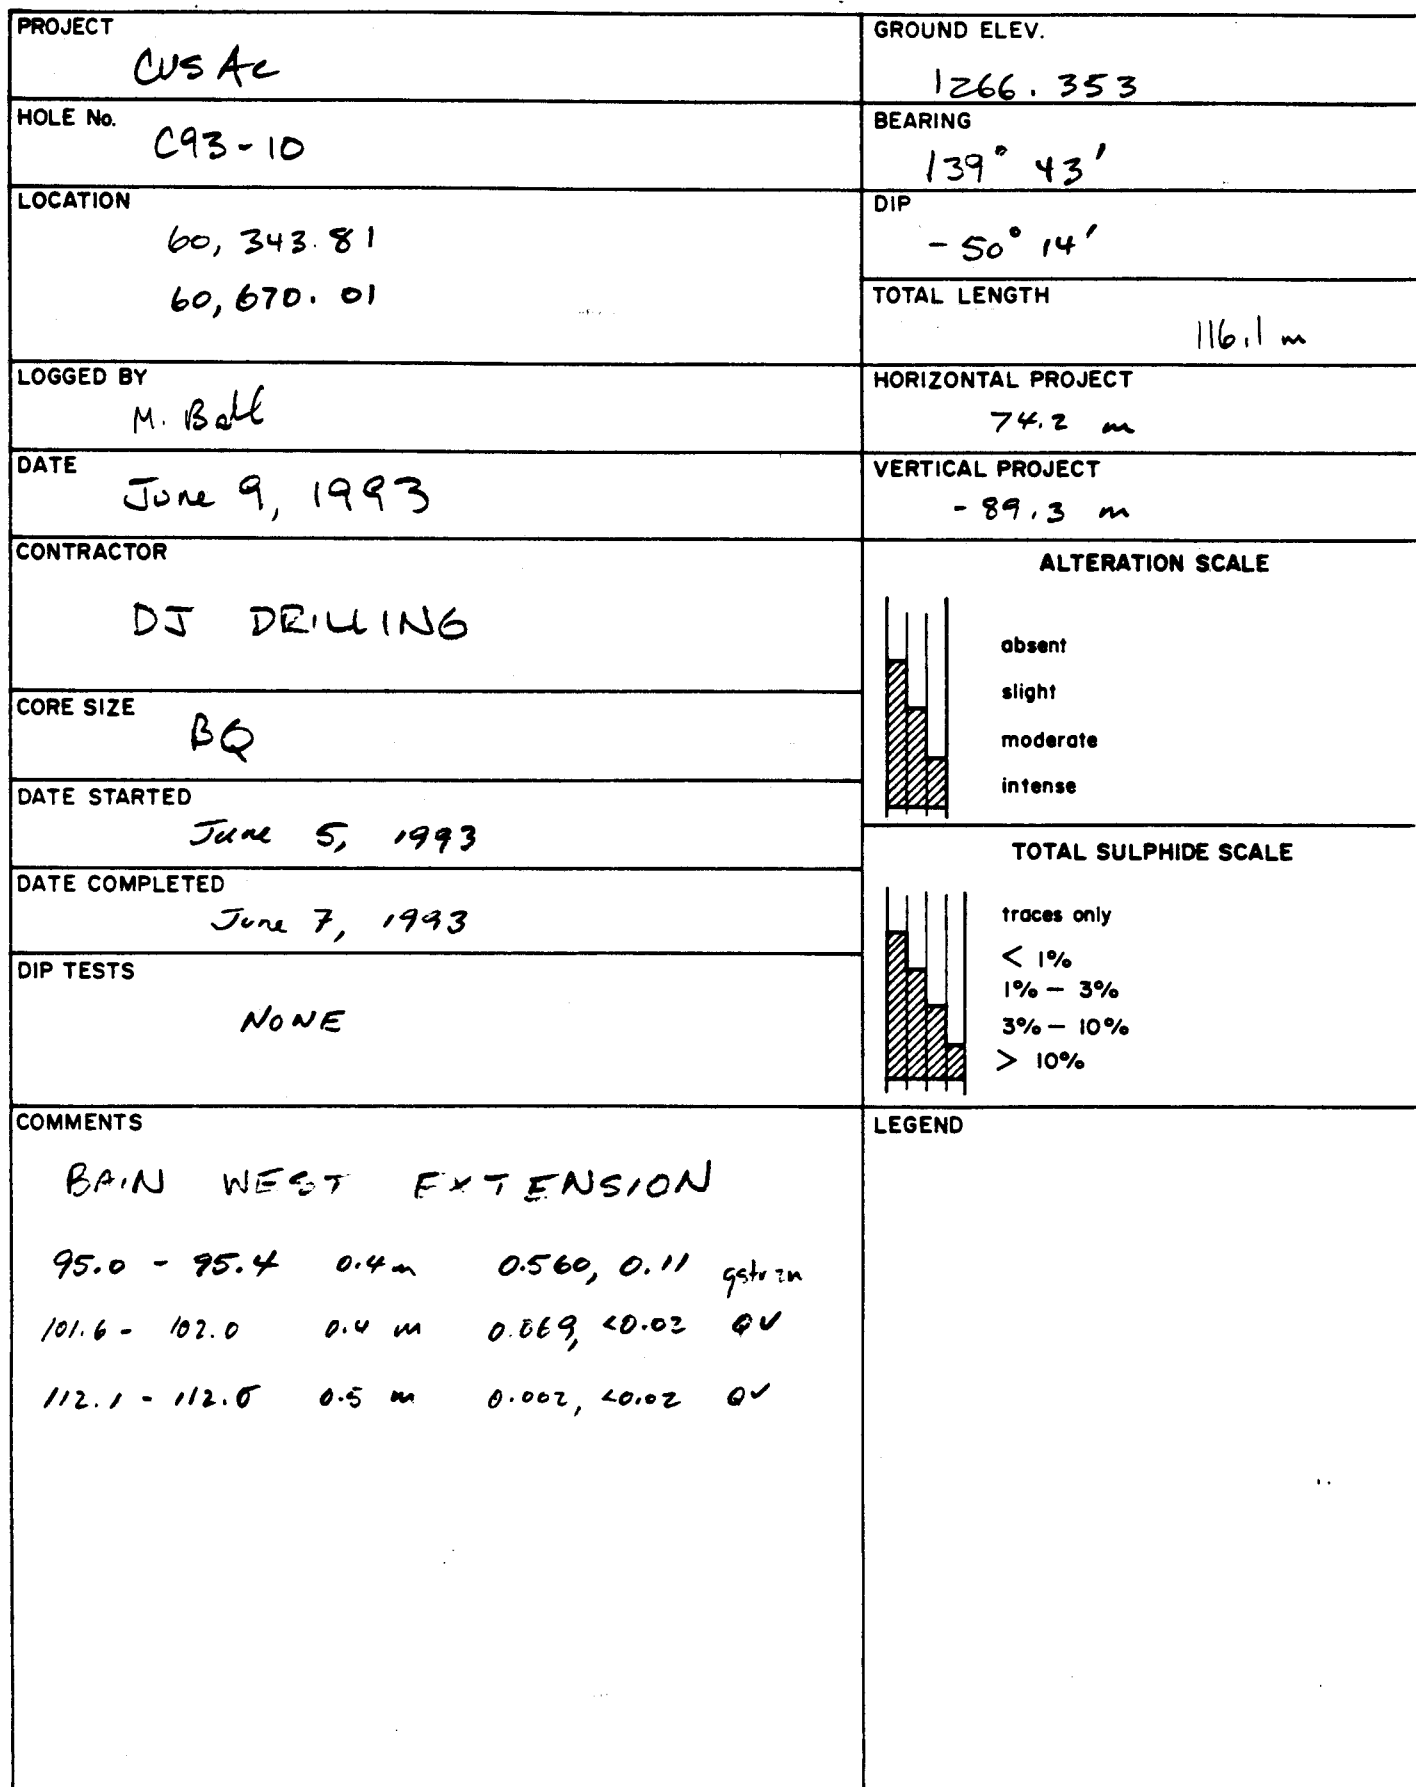 PROJECT
CUSAC
HOLE No.
C93-10
LOCATION
60, 343.81
60, 670.01
LOGGED BY
M. Ball
DATE
June 9, 1993
CONTRACTOR
DJ DRILLING
CORE SIZE
BQ
DATE STARTED
June 5, 1993
DATE COMPLETED
June 7, 1993
DIP TESTS
NONE
COMMENTS
BAIN WEST EXTENSION
95.0 - 95.4 0.4 m 0.560, 0.11 qstr zn
101.6 - 102.0 0.4 m <0.02 QV
112.1 - 112.6 0.5 m 0.002, <0.02 QV
GROUND ELEV.
1266.353
BEARING
139° 43'
DIP
- 50° 14'
TOTAL LENGTH
116.1 m
HORIZONTAL PROJECT
74.2 m
VERTICAL PROJECT
- 89.3 m
ALTERATION SCALE
absent
slight
moderate
intense
TOTAL SULPHIDE SCALE
traces only
< 1%
1% — 3%
3% — 10%
> 10%
LEGEND